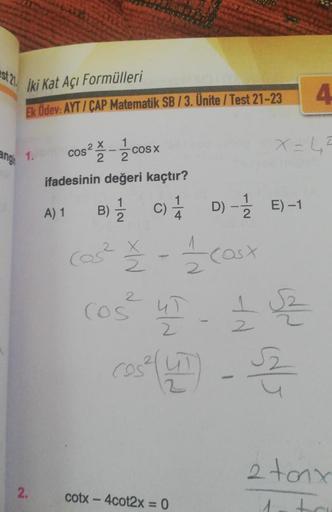 İki Kat Açı Formülleri
Ek Ödev: AYT / ÇAP Matematik SB / 3. Ünite / Test 21-23
4
1. cos² x/2 - 1/2 cosx
ifadesinin değeri kaçtır?
A) 1 B) 1/2 C) 1/4 D) -1/2 E) -1
cos² x/2 - 1/2 cosx
cos² 45/2 - 1/2 √2/2
cos² (45/2) - √2/4
2 tanx
2. cotx - 4cot2x = 0